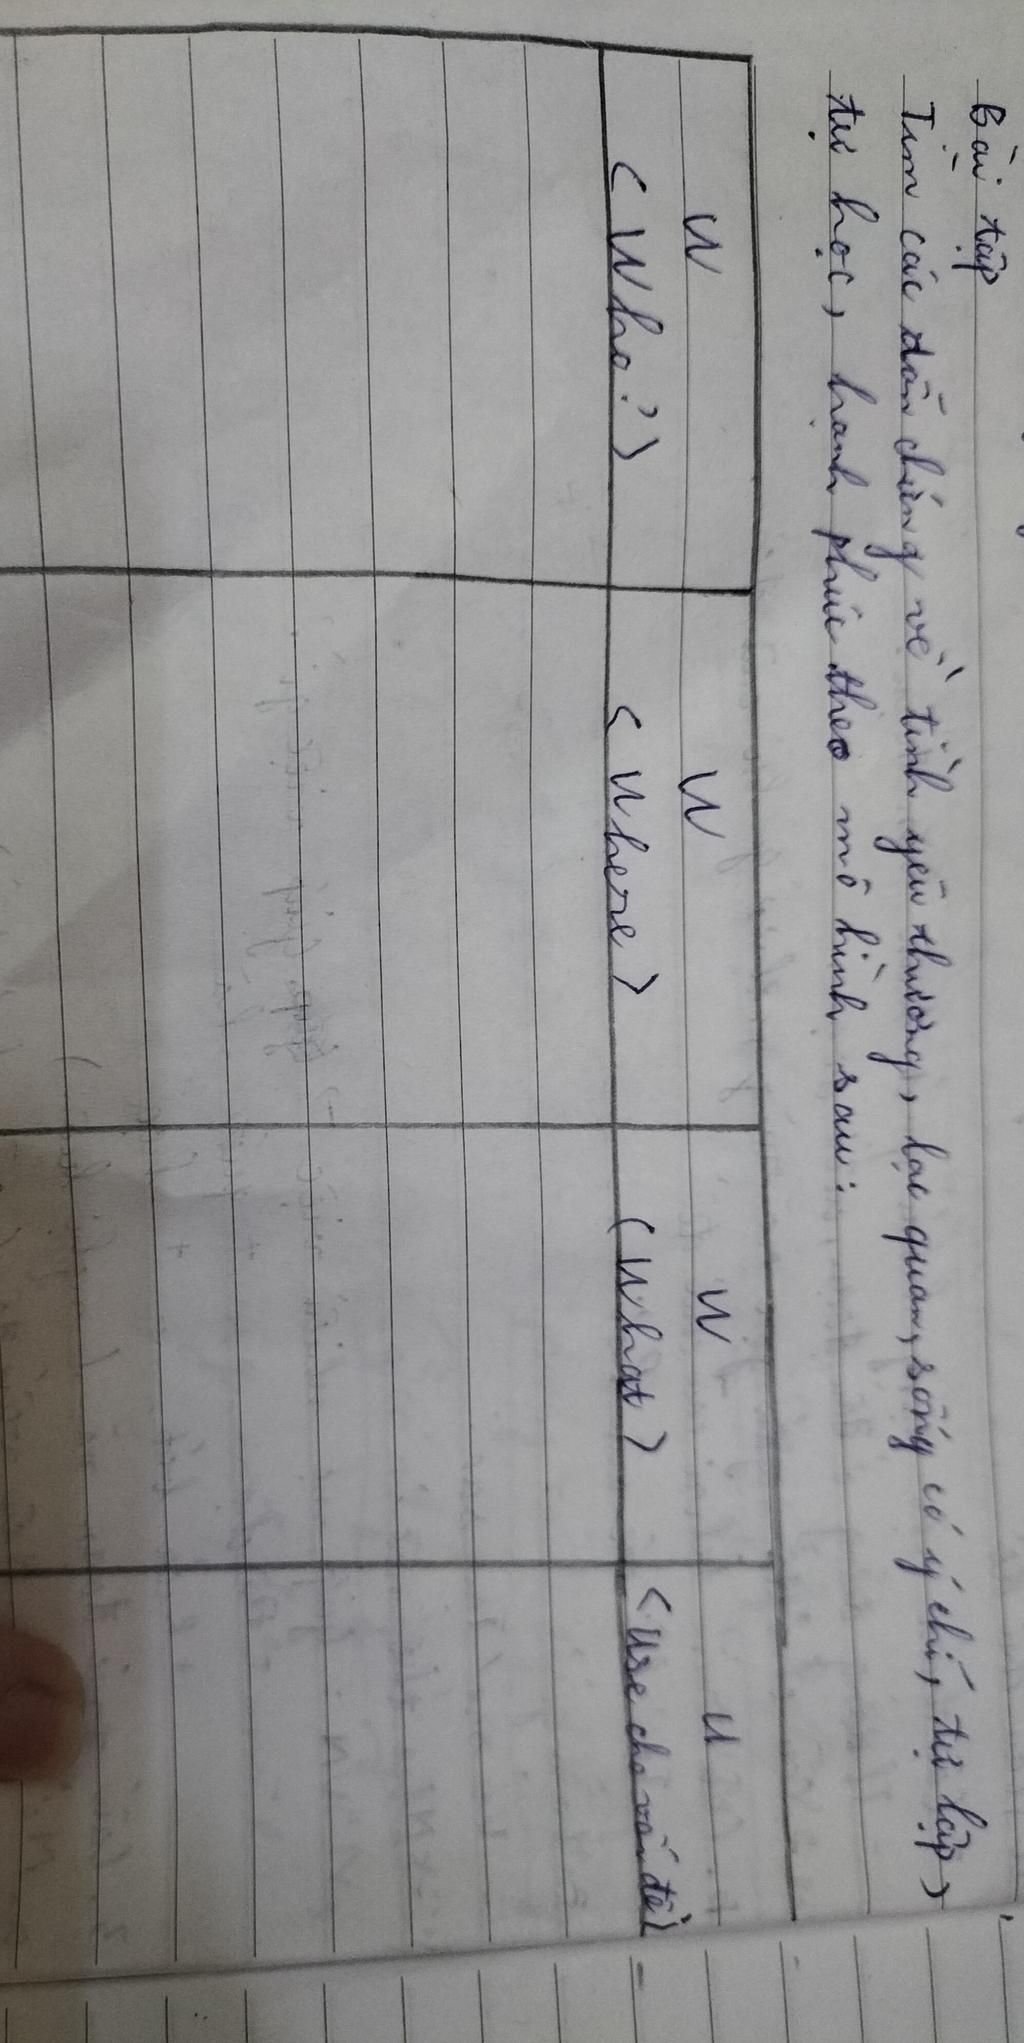 Bài tập
Tìm các dẫn chứng về tình yêu thương, lạc quan, sống có ý chí, tự lập,
tự học, hạnh phúc theo mô hình sau:
W W W U
(Who?) (Where) (What) (Use cho vấn đề)